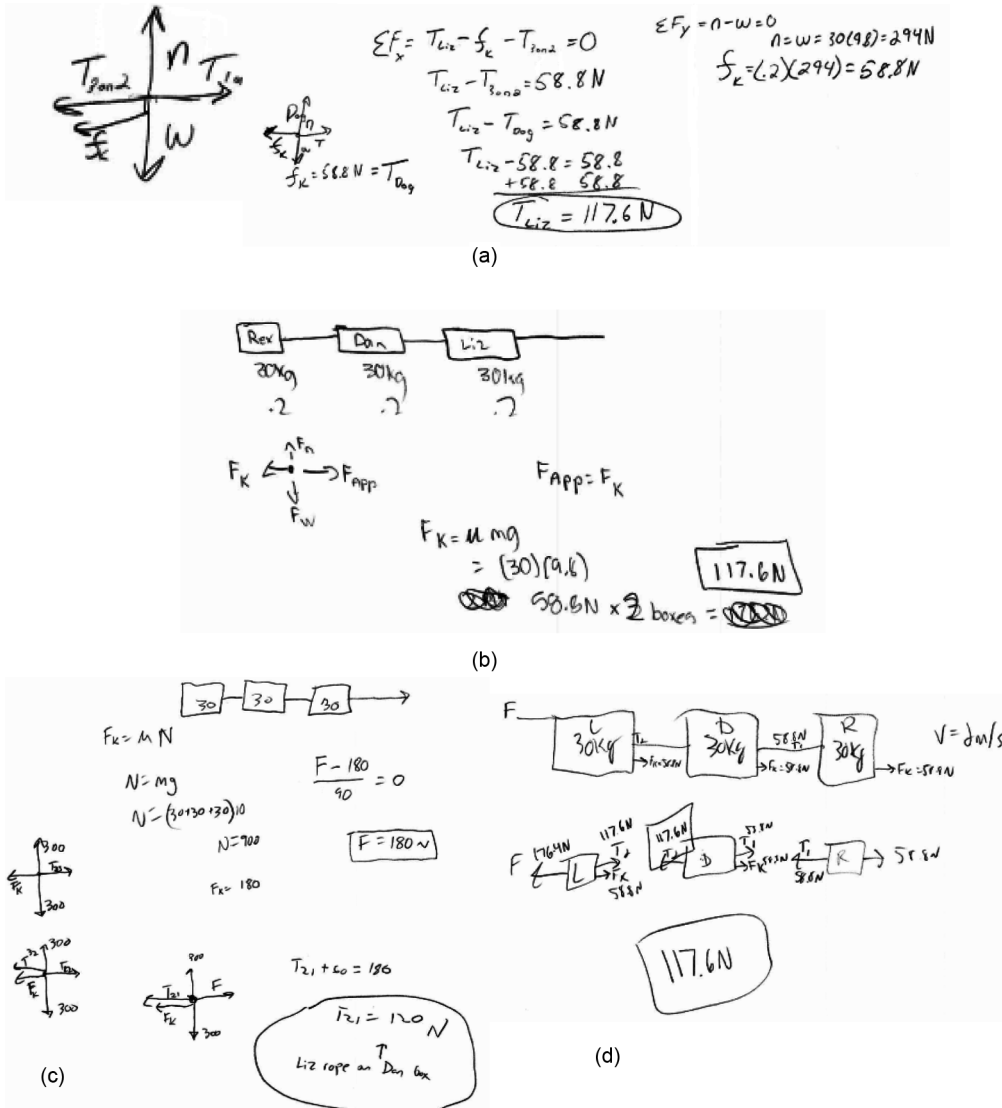 n
T₃ₒₙ₂
fₖ
W
Dog
n
fₖ
T
w
fₖ = 58.8N = T_Dog
ΣFₓ = T_Liz - fₖ - T₃ₒₙ₂ = 0
T_Liz - T₃ₒₙ₂ = 58.8N
T_Liz - T_Dog = 58.8N
T_Liz - 58.8 = 58.8
+58.8 58.8
T_Liz = 117.6 N
ΣF_y = n - w = 0
n = w = 30(9.8) = 294N
fₖ = (.2)(294) = 58.8N
(a)
Rex
Dan
Liz
30kg
30kg
30kg
.2
.2
.2
Fn
F_K
F_App
F_W
F_App = F_K
F_K = μ mg
= (30)(9.8)
58.8N × 2 boxes =
117.6N
(b)
30
30
30
Fₖ = μN
N = mg
N = (30+30+30)10
N = 900
Fₖ = 180
F - 180
90
= 0
F = 180 N
300
Fₖ
300
300
T³²
Fₖ
300
900
T₂₁
F
Fₖ
300
T₂₁ + 60 = 180
T₂₁ = 120 N
↑
Liz rope on Dan box
(c)
F
L
30kg
T₂
Fₖ=58.8N
D
30kg
58.8N
T₁
Fₖ=58.8N
R
30kg
Fₖ=58.8N
V = 2m/s
F
176.4N
L
117.6N
T₂
Fₖ
58.8N
117.6N
T₂
D
58.8N
T₁
Fₖ 58.8N
T₁
58.8N
R
58.8N
117.6N
(d)